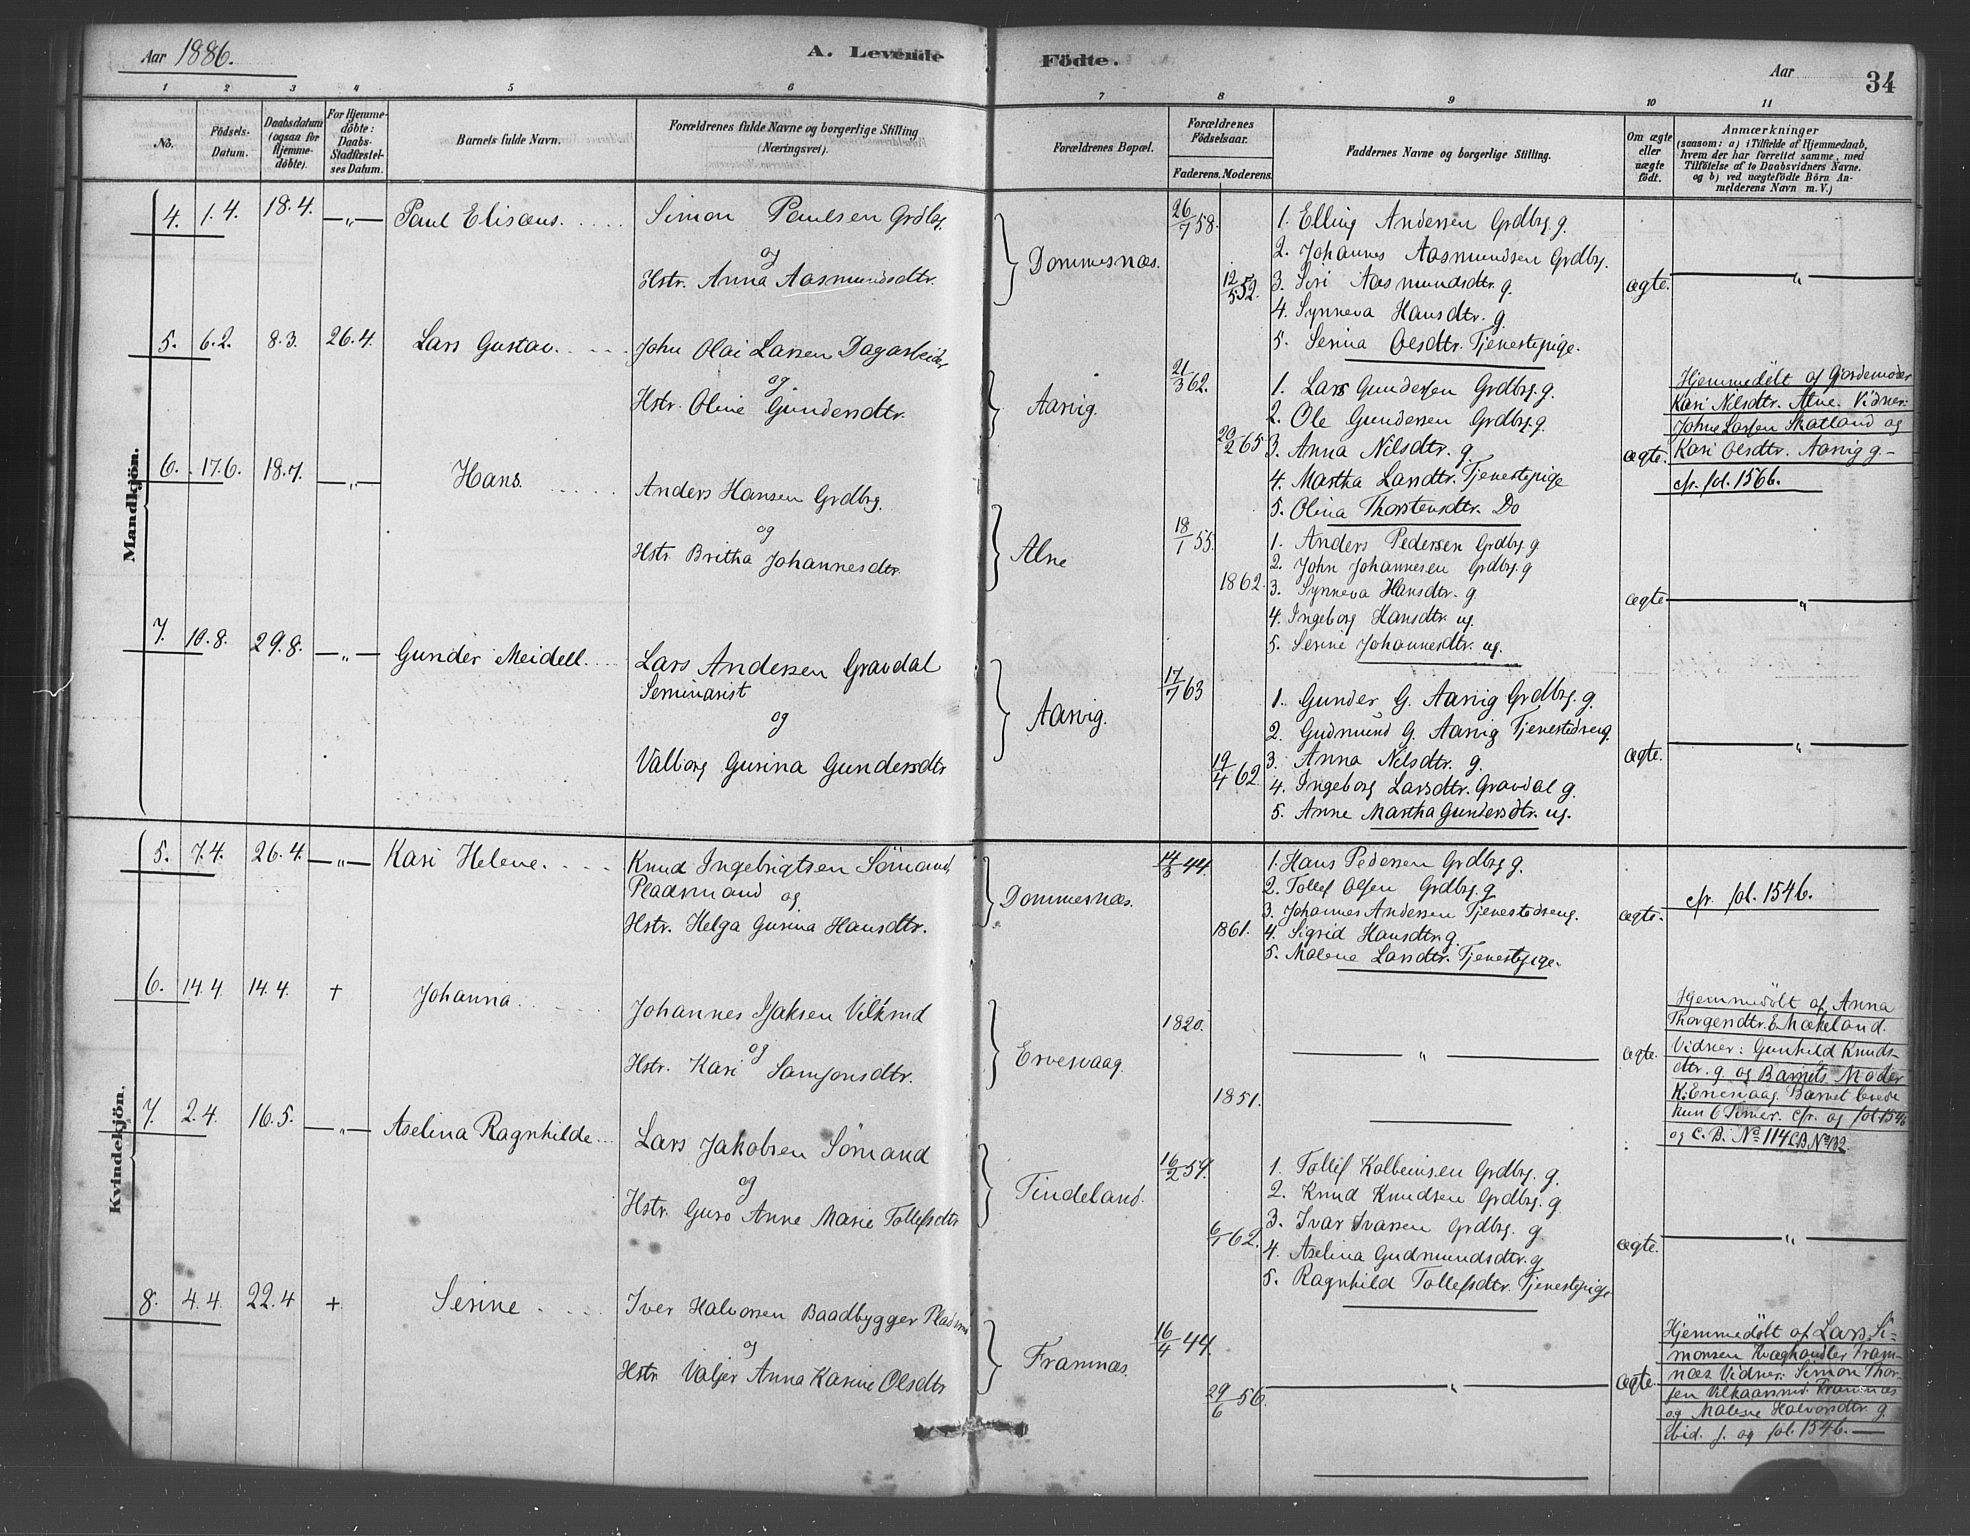 Aar 1886.
A. Levende Fødte.
Aar
34
1 2 3 4 5 6 7 8 9 10 11
No.
Fødsels-Datum.
Daabsdatum (ogsaa for Hjemmedøbte).
For Hjemmedøbte: Daabs-Stadfæstelses Datum.
Barnets fulde Navn.
Forældrenes fulde Navne og borgerlige Stilling (Næringsvei).
Forældrenes Bopæl.
Forældrenes Fødselsaar.
Faderens. Moderens.
Faddernes Navne og borgerlige Stilling.
Om ægte eller uægte født.
Anmærkninger
(saasom: a) i Tilfælde af Hjemmedaab,
hvem der har forrettet samme, med
Tilføielse af to Daabsvidners Navne,
og b) ved uægtefødte Børn An-
melderens Navn m. V.)
Mandkjön.
4. 1.4. 18.4. —„— Paul Elisæus.
Simon Paulsen Grdbg.
og
Hstr. Anna Aasmundsdtr.
Dommesnæs.
26/7 58.
12/5 52.
1. Elling Andersen Grdbrg. g.
2. Johannes Aasmundsen Grdbrg.
3. Siri Aasmundsdtr. g.
4. Synneva Hansdtr. g.
5. Serina Olsdtr. Tjenestepige.
ægte.
—„—
5. 6.2. 8.3. 26.4. Lars Gustav.
John Olai Larsen Dagarbeider
og
Hstr. Oline Gundersdtr.
Aarvig.
21/3 62.
20/2 65
1. Lars Gundersen Grdbrg. g.
2. Ole Gundersen Grdbrg. g.
3. Anna Nilsdtr. g.
4. Martha Larsdtr. Tjenestepige
5. Olina Thorstensdtr. Do
ægte.
Hjemmedøbt af Gjordemoder
Kari Nilsdtr. Alne. Vidner:
Johne Larsen Skatland og
Kari Olsdtr. Aarvig g. —
cfr. fol. 1566.
6. 17.6. 18.7. —„— Hans.
Anders Hansen Grdbrg.
og
Hstr. Britha Johannesdtr.
Alne
18/1 55.
1862.
1. Anders Pedersen Grdbrg. g.
2. John Johannesen Grdbrg. g
3. Synneva Hansdtr. g.
4. Ingeborg Hansdtr. ug.
5. Serine Johannesdtr. ug.
ægte
—„—
7. 10.8. 29.8. —„— Gunder Meidell.
Lars Andersen Gravdal
Seminarist
og
Valborg Gurina Gundersdtr
Aarvig.
17/7 63
19/4 62.
1. Gunder G. Aarvig Grdbrg. g.
2. Gudmund G. Aarvig Tjenestedreng.
3. Anna Nilsdtr. g.
4. Ingeborg Larsdtr. Gravdal g.
5. Anne Martha Gundersdtr. ug.
ægte.
—„—
Kvindekjön.
5. 7.4. 26.4. —„— Kari Helene.
Knud Ingebrigtsen Sømand,
Pladsmand og
Hstr. Helga Gurina Hansdtr.
Dommesnæs.
14/3 44.
1861.
1. Hans Pedersen Grdbrg g.
2. Tollef Olsen Grdbrg. g
3. Johannes Andersen Tjenestedreng.
4. Sigrid Hansdtr. g.
5. Malene Larsdtr. Tjenestepige.
ægte.
cfr. fol. 1546.
6. 14.4. 14.4. + Johanna.
Johannes Isaksen Vilkmd
og
Hstr. Kari Samsonsdtr.
Ervesvaag.
1820.
1851.
—„—
ægte.
Hjemmedøbt af Anna
Thorgersdtr. E. Mækeland.
Vidner: Gunhild Knuds-
dtr. g. og Barnets Moder
K. Ervesvaag. Barnet levede
kun 6 Timer. cfr. og fol 1546
og C. B. No 114 C.B. No 132.
7. 2.4. 16.5. —„— Aselina Ragnhilde
Lars Jakobsen Sømand
og
Hstr. Guro Anne Marie Tollefsdtr
Tindeland.
16/2 59.
6/1 62.
1. Tollef Kolbeinsen Grdbrg. g.
2. Knud Knudsen Grdbrg. g
3. Ivar Ivarsen Grdbrg. g
4. Aselina Gudmundsdtr. g
5. Ragnhild Tollefsdtr. Tjenestepige
ægte.
—„—
8. 4.4. 22.4 + Serine
Iver Halvorsen Baadbygger Pladsmd
og
Hstr Valjer Anna Karine Olsdtr
Framnæs.
16/4 44.
29/6 56.
—„—
ægte.
Hjemmedøbt af Lars Si-
monsen Kvæghandler Fram-
næs Vidner: Simon Thor-
sen Vilkaarsmd. Framnæs
og Malene Halvorsdtr g.
ibid. f. og fol. 1546. —